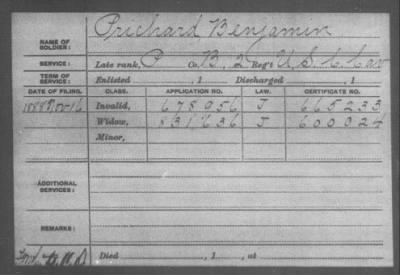 NAME OF SOLDIER: Prichard Benjamin
SERVICE: Late rank, P Co. B, 2 Reg't U.S.C. Cav
TERM OF SERVICE: Enlisted , 1 Discharged , 1
DATE OF FILING. CLASS. APPLICATION NO. LAW. CERTIFICATE NO.
1888 Nov 16 Invalid, 678956 J 665233
Widow, 831,636 J 600024
Minor,
ADDITIONAL SERVICES:
REMARKS:
Died , 1 , at